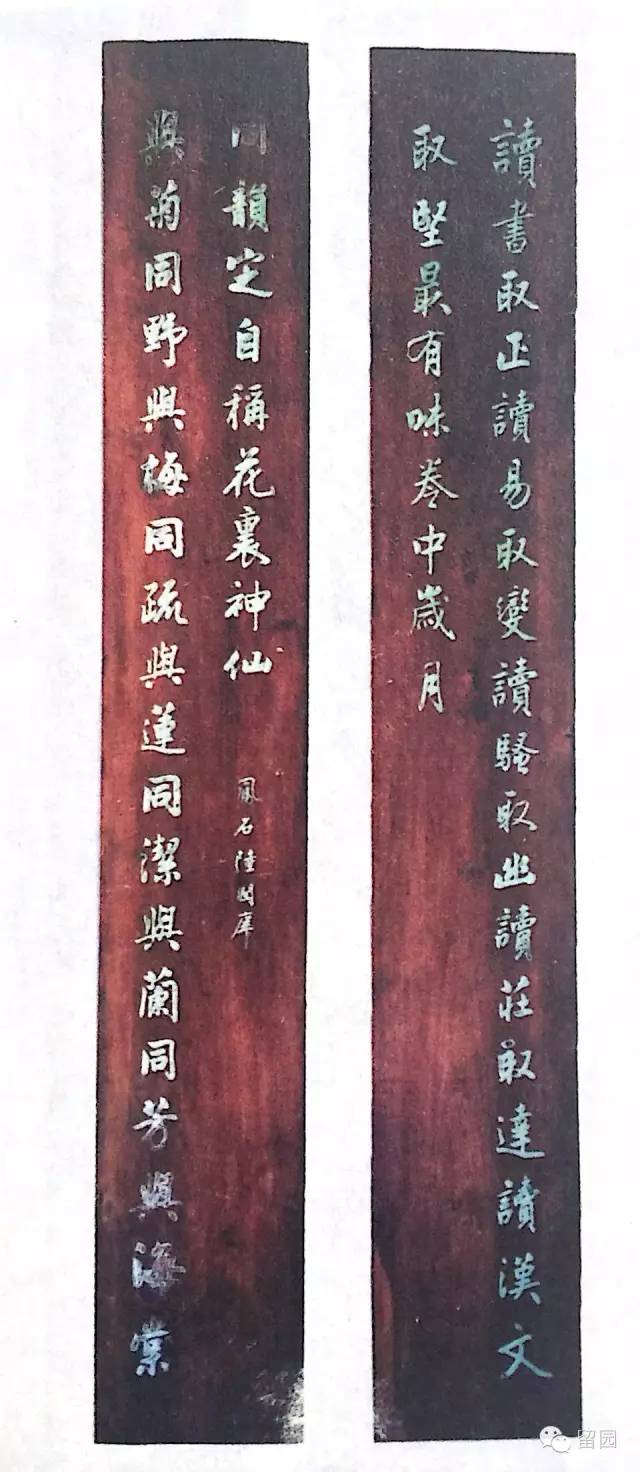 讀書取正讀易取變讀騷取幽讀莊取達讀漢文
取堅最有味卷中歲月
與菊同野與梅同疏與蓮同潔與蘭同芳與海棠
同韻定自稱花裏神仙
鳳石陸潤庠
留园